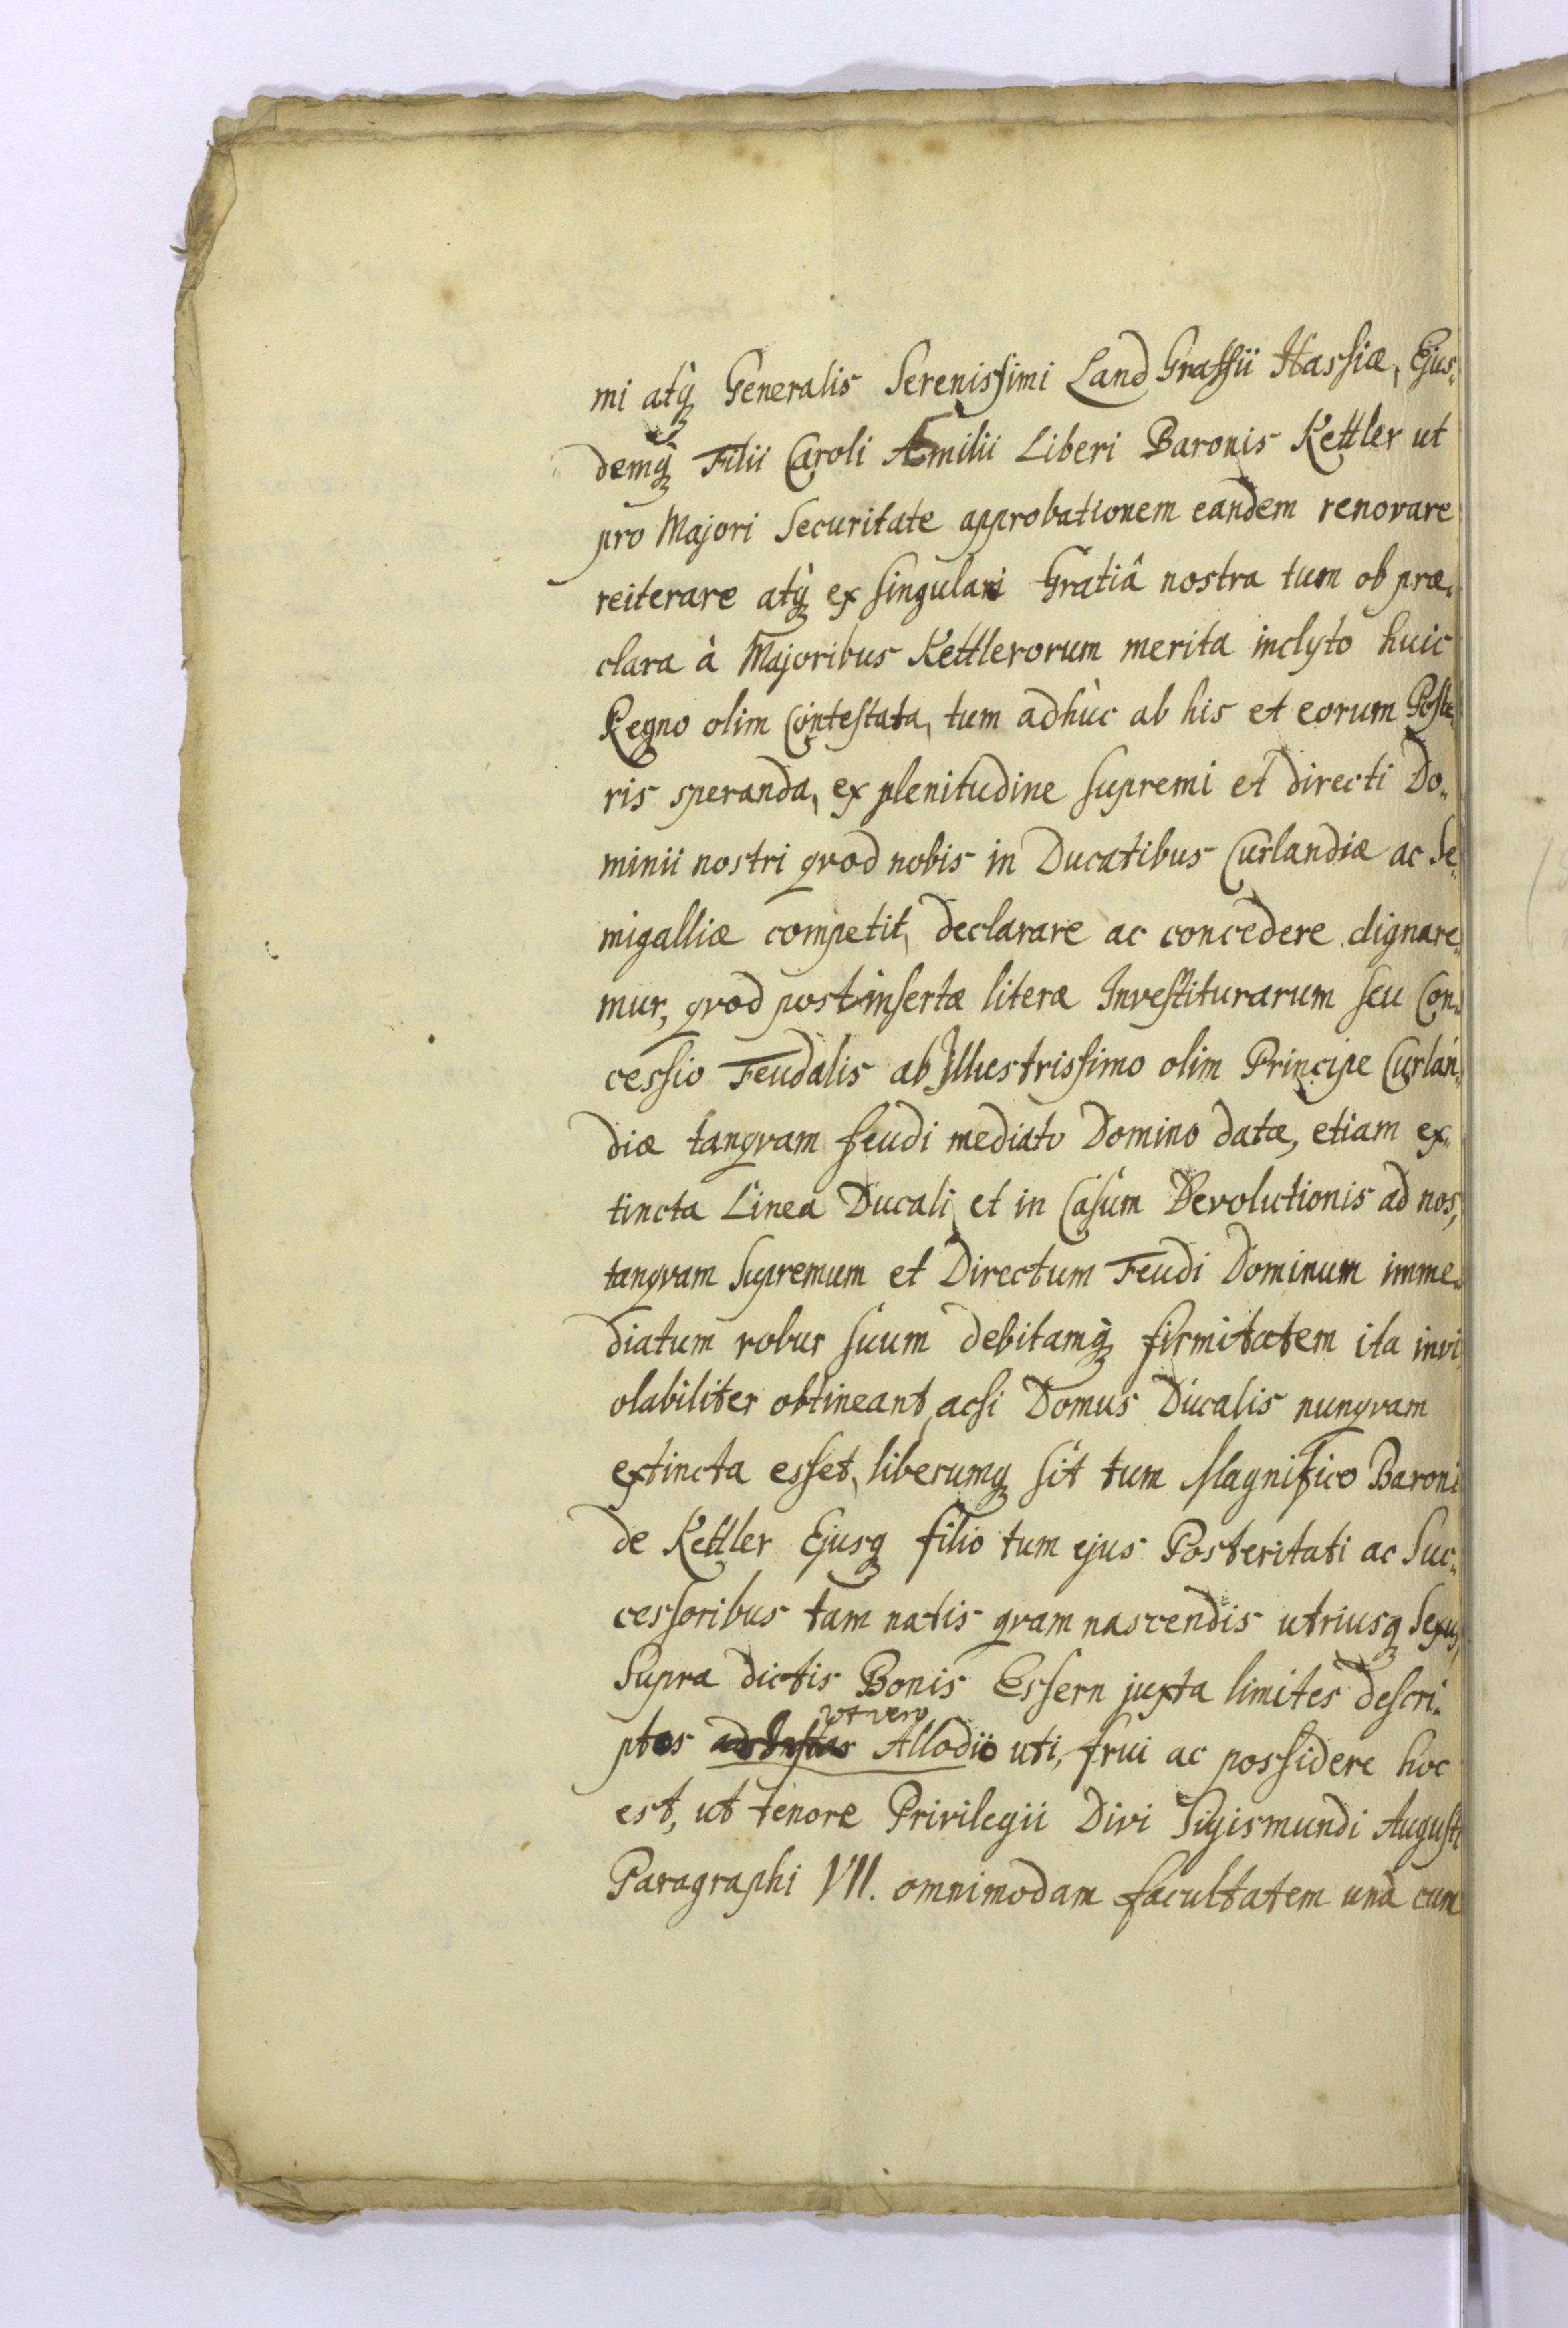 mi atq; Generalis Serenissimi Land Graffii Hassiæ, Ejus-
demq; Filii Caroli Æmilii Liberi Baronis Kettler ut
pro Majori Securitate approbationem eandem renovare
reiterare atq; ex singulari Gratiâ nostra tum ob præ-
clara à Majoribus Kettlerorum merita inclyto huic
Regno olim Contestata, tum adhùc ab his et eorum Poste-
ris speranda, ex plenitudine supremi et directi Do-
minii nostri qvod nobis in Ducatibus Curlandiæ ac Se-
migalliæ competit, declarare ac concedere dignare-
mur, qvod post insertæ literæ Investiturarum seu Con-
cessio Feudalis ab Illustrissimo olim Principe Curlan-
diæ tanqvam feudi mediato Domino datæ, etiam ex-
tincta Linea Ducali, et in Casum Devolutionis ad nos,
tanqvam Supremum et Directum Feudi Dominum imme-
diatum robur suum debitamq; firmitatem ita invi
olabiliter obtineant, acsi Domus Ducalis nunqvam
extincta esset, liberumq; sit tum Magnifico Baroni
de Kettler Ejusq; filio tum ejus Posteritati ac Suc-
cessoribus tam natis qvam nascendis utriusq; Sexus,
Supra dictis Bonis Essern juxta limites descri-
ut vero
ptos ad Instar Allodiio uti, frui ac possidere hoc
est, ut tenore Privilegii Divi Sigismundi Augusti
Paragraphi VII. omnimodam facultatem unà cum